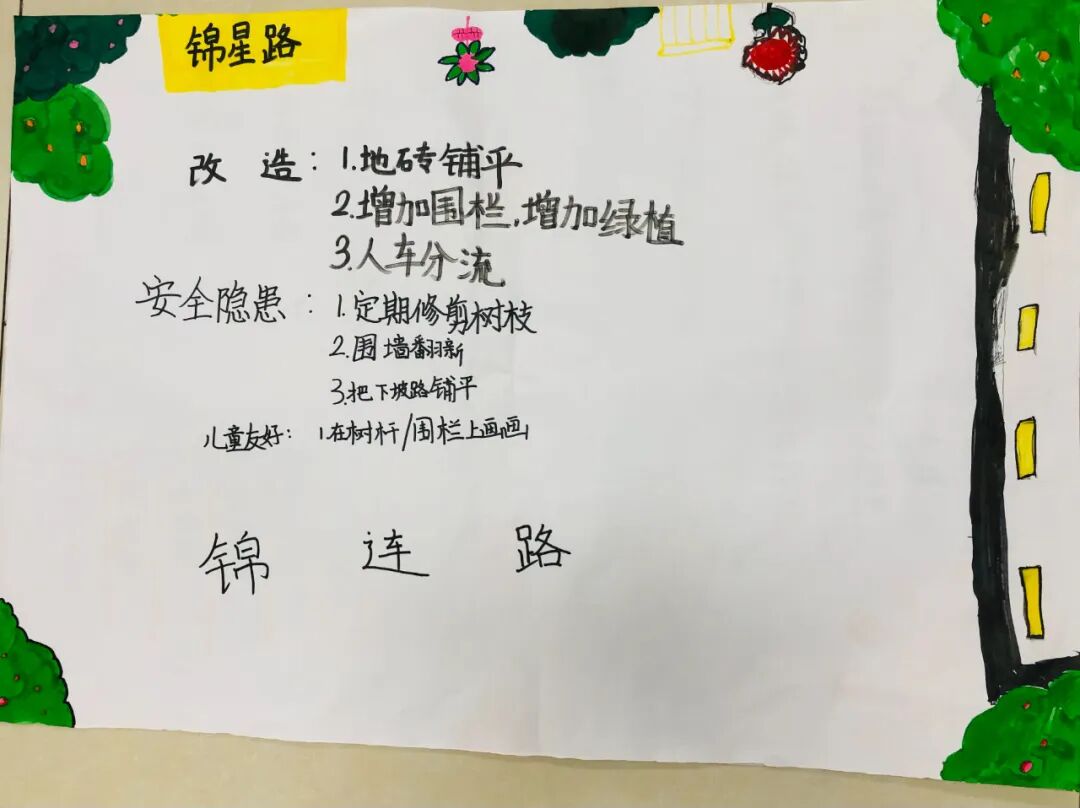 锦星路
改 造：1.地砖铺平
2.增加围栏，增加绿植
3.人车分流
安全隐患：1.定期修剪树枝
2.围墙翻新
3.把下坡路铺平
儿童友好：1.在树杆/围栏上画画
锦 连 路